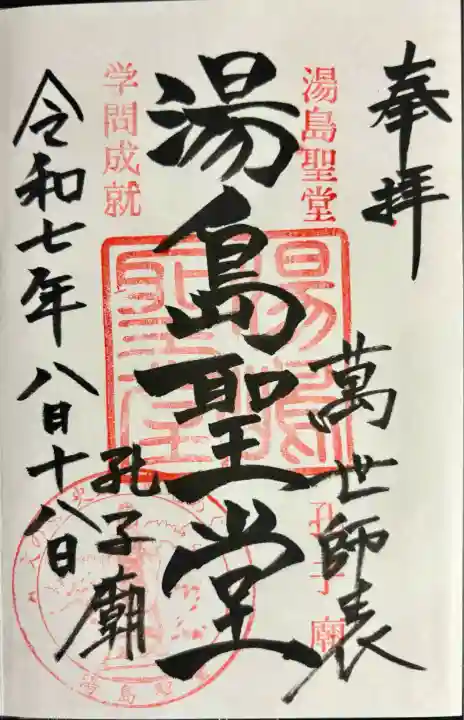 奉拝
萬世師表
湯島聖堂
孔子廟
湯島聖堂
湯島聖堂
孔子廟
学問成就
令和七年八月十八日
湯島聖堂